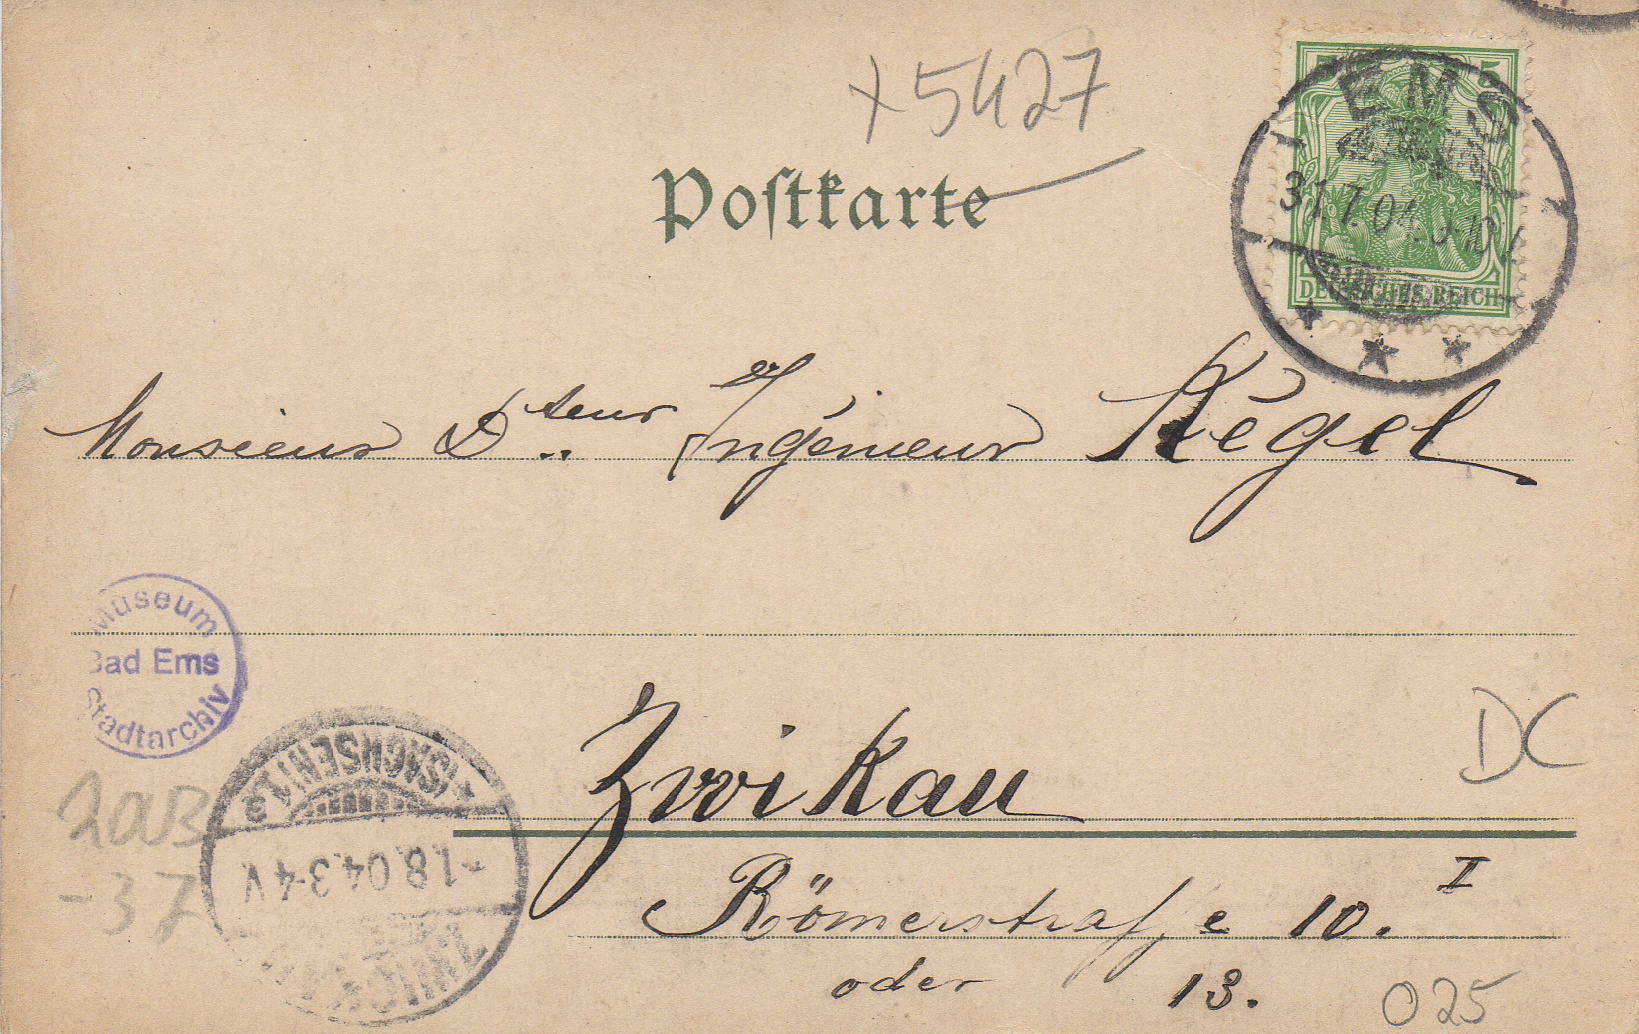 +5427
Postkarte
5
EMS
31.7.04.
DEUTSCHES REICH
Monsieur Dteur.. Ingénieur Kégel
Museum
Bad Ems
Stadtarchiv
Zwikau
DC
(SACHSEN)
-1.8.04.3-4V.
ZWICKAU
Römerstrasse 10. I
oder 13.
-37
025